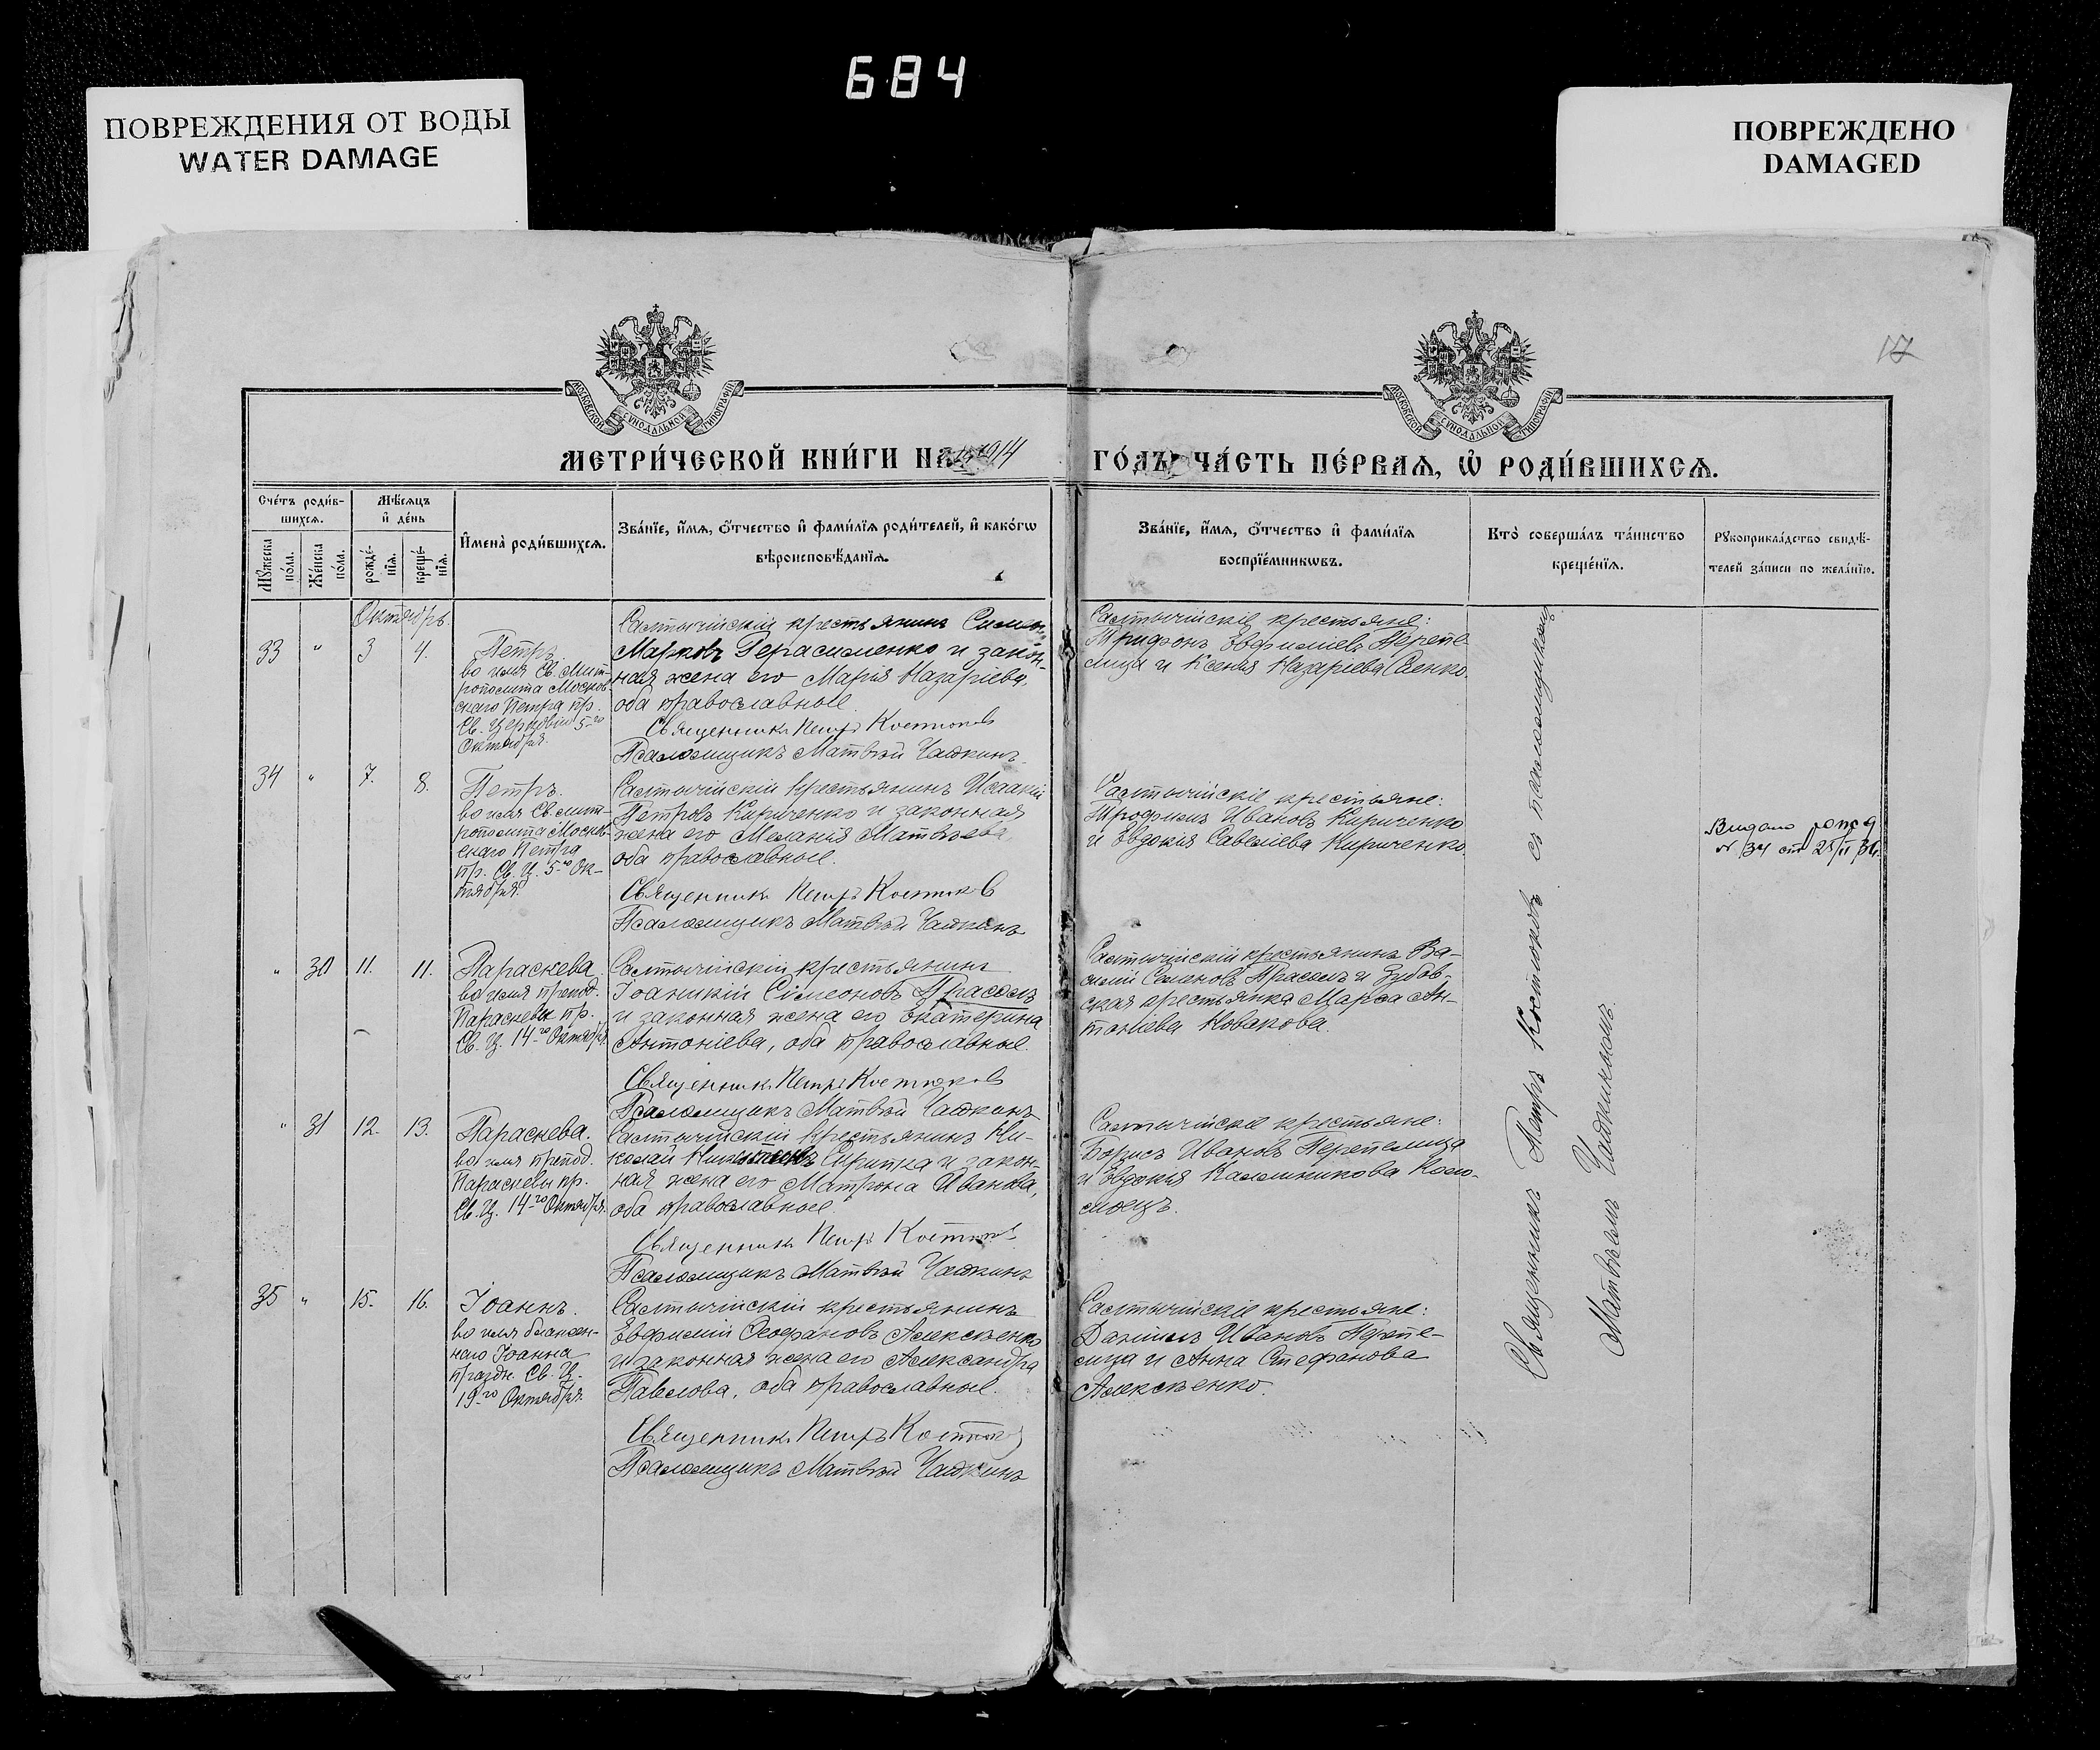 684
ПОВРЕЖДЕНИЯ ОТ ВОДЫ
WATER DAMAGE
ПОВРЕЖДЕНО
DAMAGED
17
МОСКОВСКОЙ СѴНОДАЛЬНОЙ ТИПОГРАФІИ
МОСКОВСКОЙ СѴНОДАЛЬНОЙ ТИПОГРАФІИ
МЕТРИ́ЧЕСКОЙ КНИ́ГИ НА 1914
ГО́ДЪ ЧА́СТЬ ПЕ́РВАѦ, Ѡ҆ РОДИ́ВШИХСѦ.
Сче́тъ роди́в-
шихсѧ.
Мѣ́сѧцъ
и҆ де́нь
Мꙋ́жеска
по́ла.
Же́нска
по́ла.
рожде́-
нїѧ.
креще́-
нїѧ.
И҆мена̀ роди́вшихсѧ.
Зва́нїе, и҆́мѧ, ѻ҆́тчество и҆ фами́лїѧ роди́телей, и҆ како́гѡ
вѣроисповѣ́данїѧ.
Зва́нїе, и҆́мѧ, ѻ҆́тчество и҆ фами́лїѧ
воспрїе́мникѡвъ.
Кто̀ соверша́лъ та́инство
креще́нїѧ.
Рꙋкоприкла́дство свидѣ́-
телей за́писи по жела́нїю.
Октябрь.
33 " 3 4.
Петръ.
во имя Св. Мит-
рополита Москов-
скаго Петра пр.
Св. Церковію 5-го
Октября.
Салтычійскій крестьянинъ Симеон
Марковъ Герасименко и закон-
ная жена его Марія Назаріева,
оба православные.
Священникъ Петръ Костюков
Псаломщикъ Матвѣй Чашкинъ.
Салтычійскіе крестьяне:
Трифонъ Евфиміевъ Перепе-
лица и Ксенія Назаріева Саенко.
34 " 7. 8.
Петръ.
во имя Св. мит-
рополита Москов-
скаго Петра
пр. Св. Ц. 5-го Ок-
тября.
Салтычійскій крестьянинъ Исаакій
Петровъ Кириченко и законная
жена его Меланія Матвѣева,
оба православные.
Священникъ Петръ Костюков
Псаломщикъ Матвѣй Чашкинъ
Салтычійскіе крестьяне:
Трофимъ Ивановъ Кириченко
и Евдокія Савеліева Кириченко.
№ 34 от 25/II 31.
" 30 11. 11.
Параскева.
во имя препод.
Параскевы пр.
Св. Ц. 14-го Октября.
Салтычійскій крестьянинъ
Іоанникій Сімеоновъ Прасолъ
и законная жена его Екатерина
Антоніева, оба православные.
Священникъ Петръ Костюков
Псаломщикъ Матвѣй Чашкинъ
Салтычійскій крестьянинъ Ва-
силій Семеновъ Прасолъ и Зубов-
ская крестьянка Марѳа Ан-
тоніева Новакова.
" 31 12. 13.
Параскева.
во имя препод.
Параскевы пр.
Св. Ц. 14-го Октября.
Салтычійскій крестьянинъ Ни-
колай Никитинъ Скрипка и закон-
ная жена его Матрона Иванова,
оба православные.
Священникъ Петръ Костюков
Псаломщикъ Матвѣй Чашкинъ
Салтычійскіе крестьяне:
Борисъ Ивановъ Перепелица
и Евдокія Каллиникова Коло-
моецъ.
35 " 15. 16.
Іоаннъ.
во имя блажен-
наго Іоанна
праздн. Св. Ц.
19-го Октября.
Салтычійскій крестьянинъ
Евфимій Ѳеофановъ Алексѣенко
и законная жена его Александра
Павлова, оба православные.
Священникъ Петръ Костюков
Псаломщикъ Матвѣй Чашкинъ
Салтычійскіе крестьяне:
Даніилъ Ивановъ Перепе-
лица и Анна Стефанова
Алексѣенко.
Священникъ Петръ Костюковъ съ псаломщикомъ
Матвѣемъ Чашкинымъ.